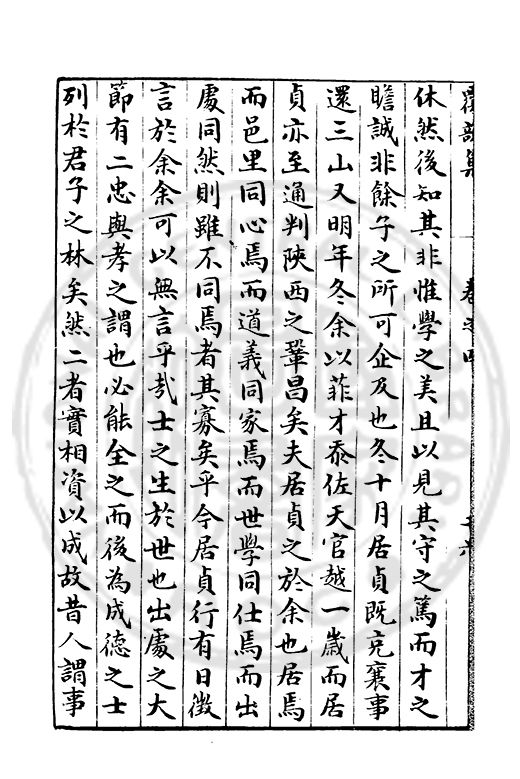 休然後知其非惟學之美且以見其守之篤而才之
瞻誠非餘子之所可企及也冬十月居貞既克襄事
還三山又明年冬余以菲才忝佐天官越一歲而居
貞亦至通判陝西之鞏昌矣夫居貞之於余也居焉
而邑里同心焉而道義同家焉而世學同仕焉而出
處同然則雖不同焉者其寡矣乎今居貞行有日徵
言於余余可以無言乎哉士之生於世也出處之大
節有二忠與孝之謂也必能全之而後為成德之士
列於君子之林矣然二者實相資以成故昔人謂事